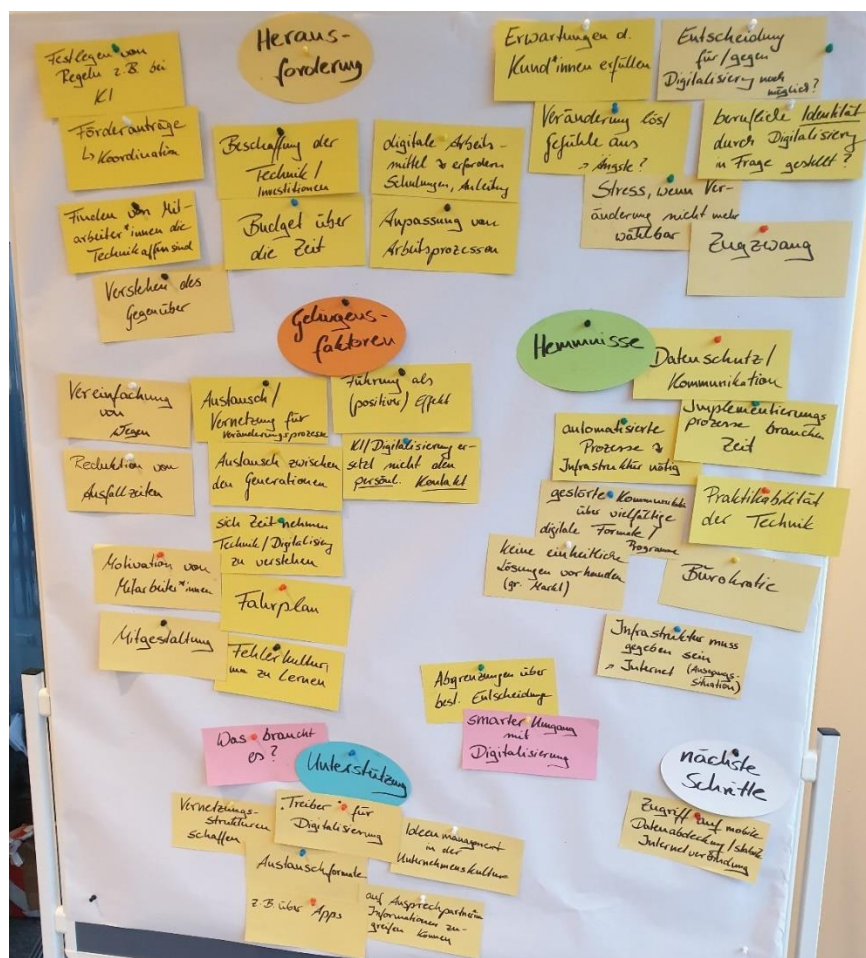 Heraus-
forderung
Festlegen von
Regeln z.B. bei
KI
Förderanträge
↳ Koordination
Finden von Mit-
arbeiter*innen die
Technikaffen sind
Verstehen des
Gegenüber
Beschaffung der
Technik/
Investitionen
Budget über
die Zeit
digitale Arbeits-
mittel → erfordern
Schulungen, Anleitung
Anpassung von
Arbeitsprozessen
Erwartungen d.
Kund*innen erfüllen
Entscheidung
für/gegen
Digitalisierung noch
möglich?
Veränderung löst
Gefühle aus
→ Ängste?
berufliche Identität
durch Digitalisierg
in Frage gestellt?
Stress, wenn Ver-
änderung nicht mehr
wählbar
Zugzwang
Gelingens-
faktoren
Vereinfachung
von
Wegen
Reduktion von
Ausfallzeiten
Motivation von
Mitarbeiter*innen
Mitgestaltung
Austausch/
Vernetzung für
Veränderungsprozesse
Austausch zwischen
den Generationen
sich Zeit nehmen
Technik/Digitalisierg
zu verstehen
Fahrplan
Fehlerkultur,
um zu Lernen
Führung als
(positiver) Effekt
KI/Digitalisierung er-
setzt nicht den
persönl. Kontakt
Hemmnisse
Datenschutz/
Kommunikation
automatisierte
Prozesse →
Infrastruktur nötig
Implementierungs
prozesse brauchen
Zeit
gestörte Kommunikation
über vielfältige
digitale Formate/
Programme
Praktikabilität
der Technik
keine einheitliche
Lösungen vorhanden
(gr. Markt)
Bürokratie
Infrastruktur muss
gegeben sein
→ Internet (Ausgangs-
situation)
Abgrenzungen über
best. Entscheidung
smarter Umgang
mit
Digitalisierung
Was braucht
es?
Unterstützung
Vernetzungs-
strukturen
schaffen
Treiber für
Digitalisierung
Ideenmanagement
in der
Unternehmenskultur
Austauschformate
z.B. über Apps
auf Ansprechpartner
Informationen zu-
greifen können
nächste
Schritte
Zugriff auf mobile
Datenabdeckung/stabile
Internetverbindung